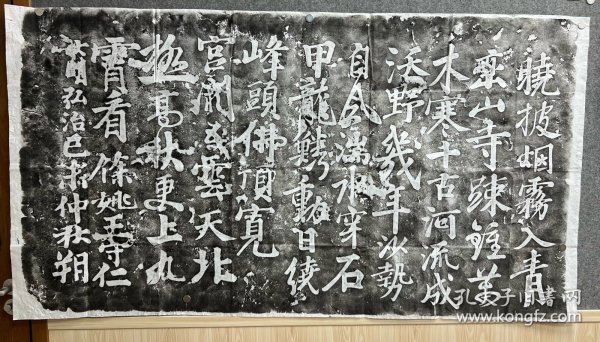 曉披烟霧入青
巒山寺踈鍾萬
木寒千古河流成
沃野幾年沙勢
自風湍水穿石
甲龍鱗動日繞
峰頭佛頂寬
宮闕五雲天北
極高秋更上九
霄看 餘姚王守仁
大明弘治己未仲秋朔
孔夫子旧书网
www.kongfz.com